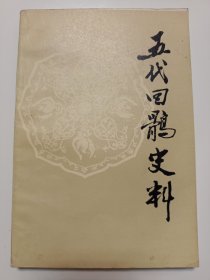 五代回鹘史料